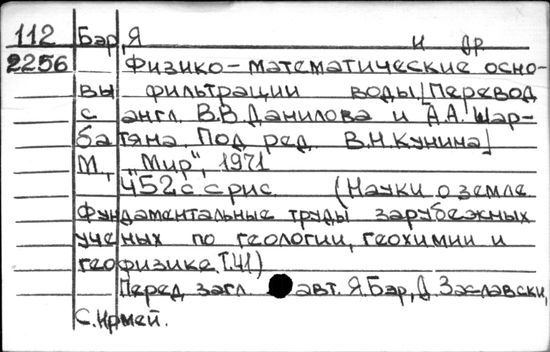 112 Бэр, Я и др
2256 Физико-математические осно-
вы фильтрации воды[Перевод
с англ. В.В.Данилова и А.А.Шар-
батяна. Под ред. В.Н.Кунина]
М., "Мир", 1971
452с с рис. (Науки о земле
Фундаментальные труды зарубежных
ученых по геологии, геохимии и
геофизике.Т.41)
Перед загл. авт. Я.Бэр, Д.Заславски,
С.Ирмей.